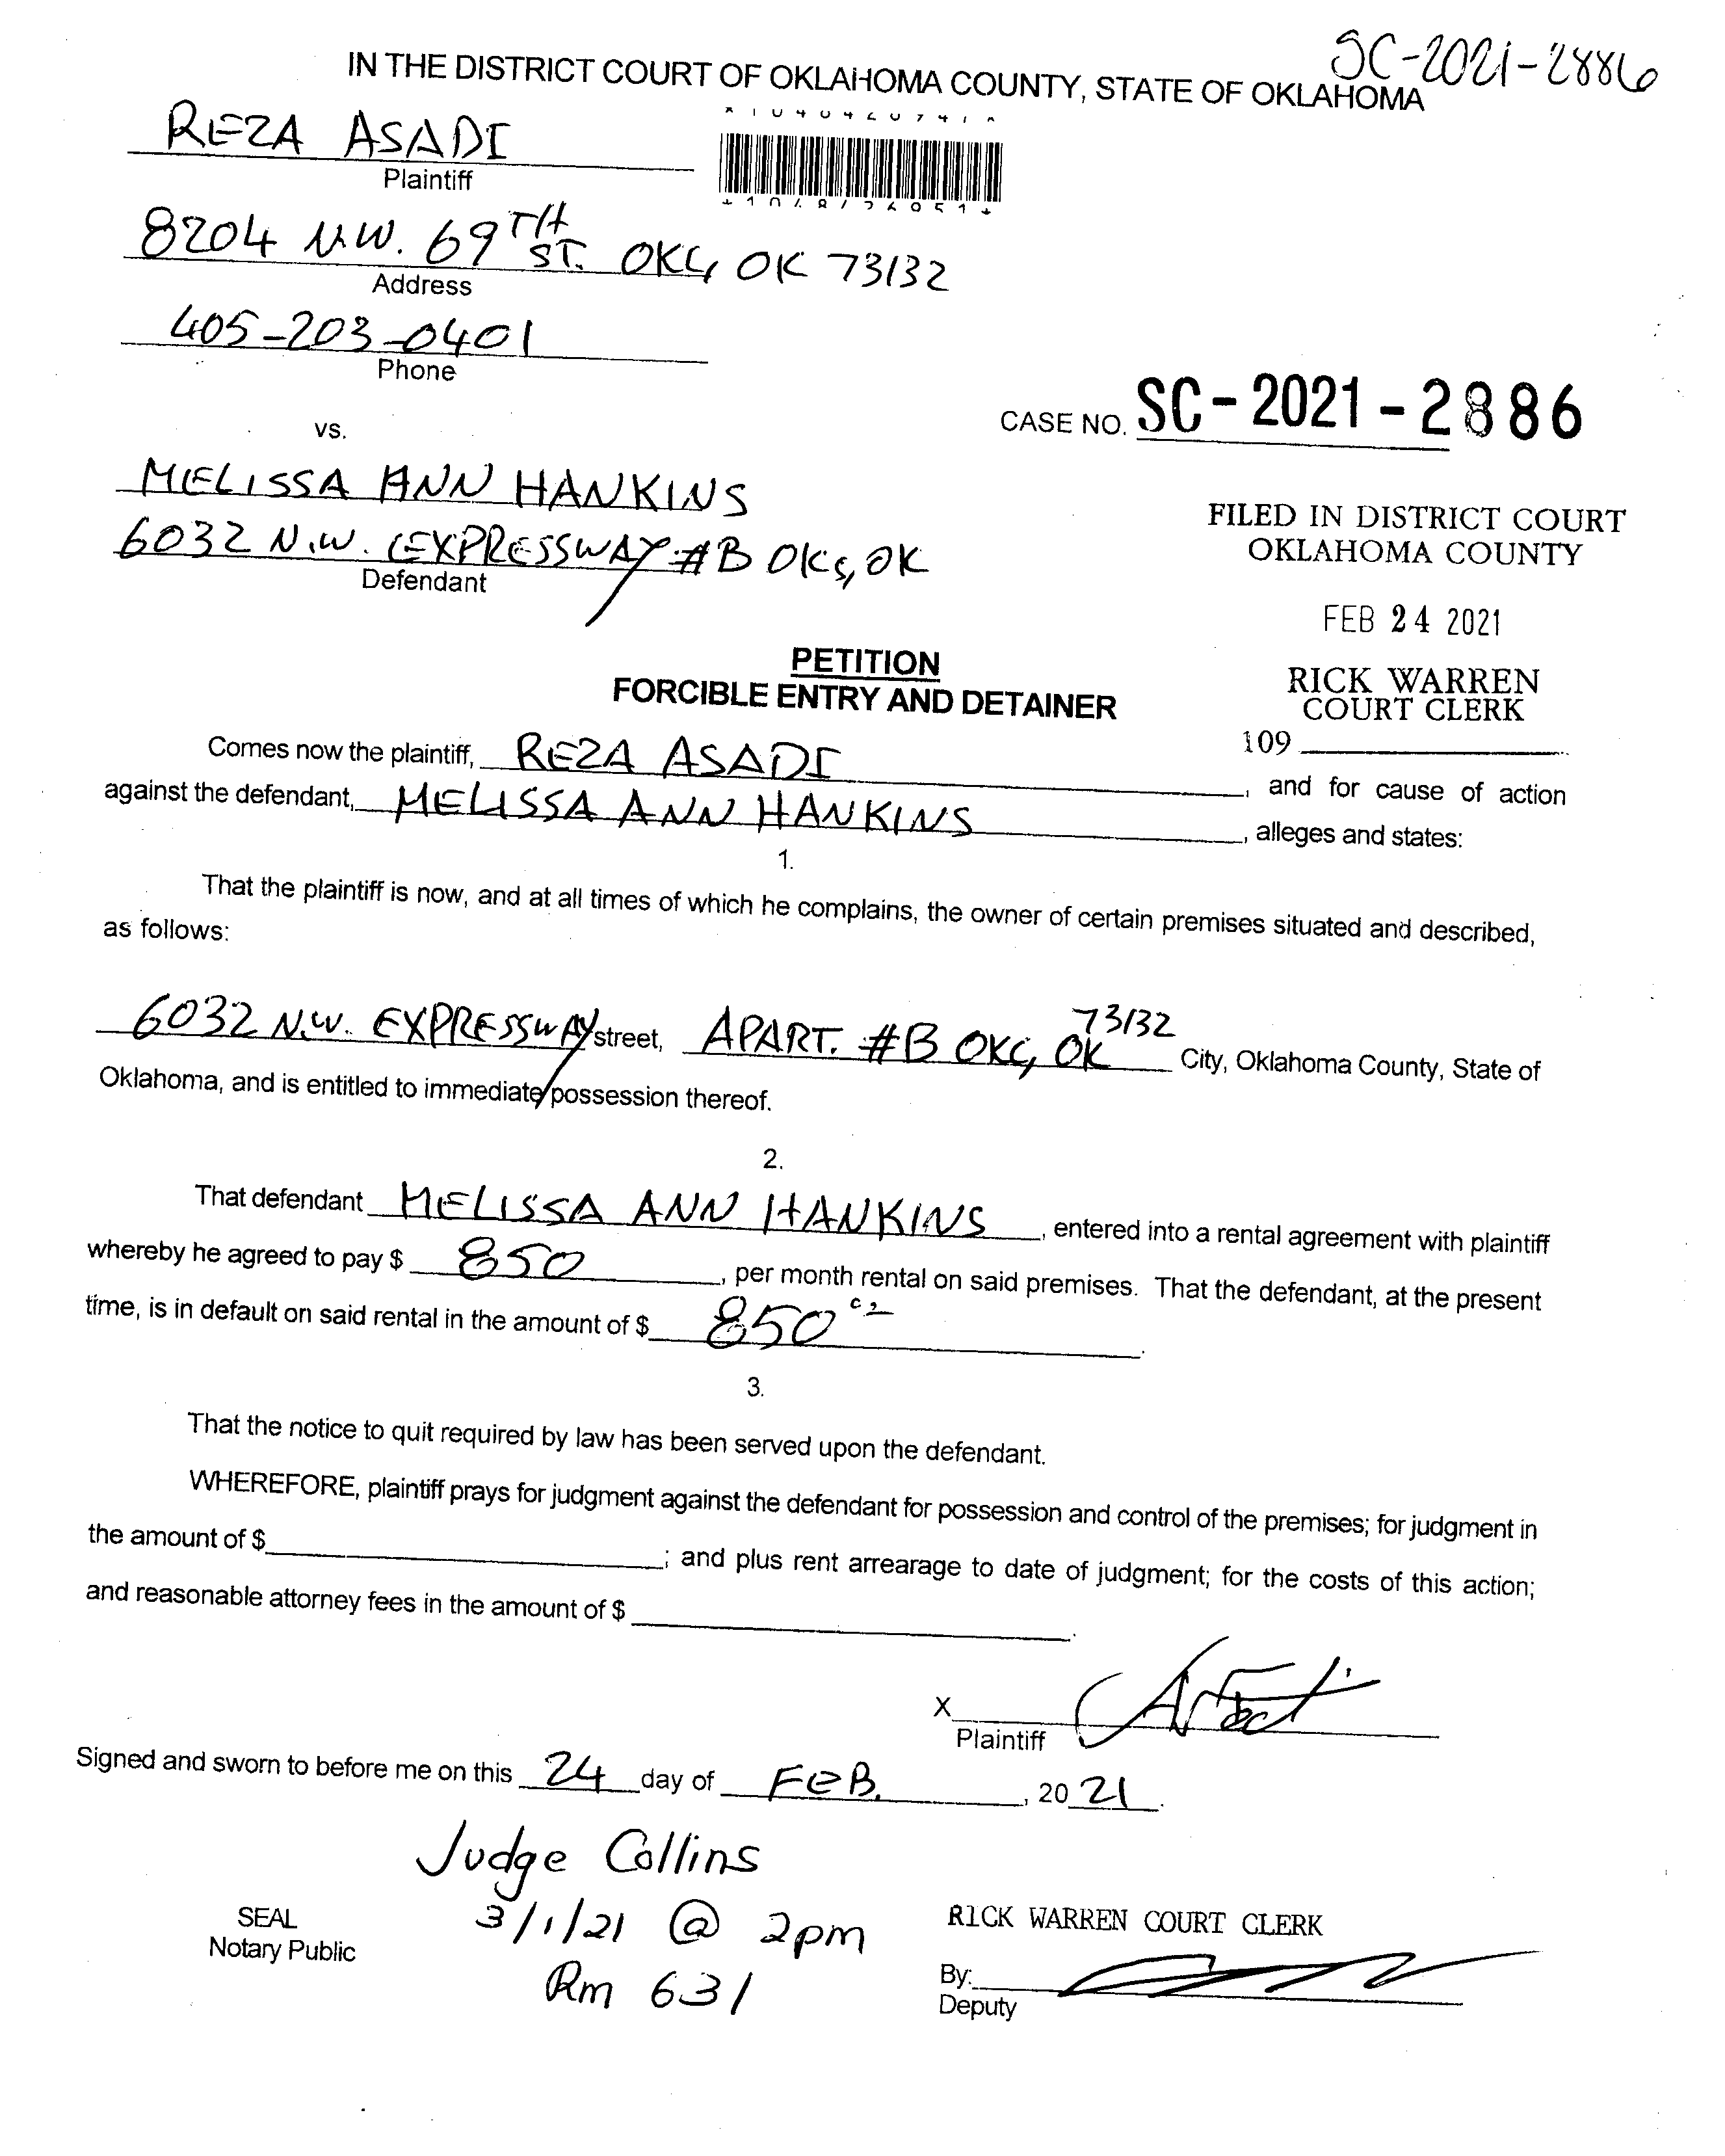 SC-2021-2886
IN THE DISTRICT COURT OF OKLAHOMA COUNTY, STATE OF OKLAHOMA
REZA ASADI
Plaintiff
8204 N.W. 69TH ST. OKC, OK 73132
Address
405-203-0401
Phone
CASE NO. SC-2021-2886
vs.
MELISSA ANN HANKINS
6032 N.W. EXPRESSWAY #B OKC, OK
Defendant
FILED IN DISTRICT COURT
OKLAHOMA COUNTY
FEB 24 2021
RICK WARREN
COURT CLERK
109
PETITION
FORCIBLE ENTRY AND DETAINER
Comes now the plaintiff, REZA ASADI, and for cause of action
against the defendant, MELISSA ANN HANKINS, alleges and states:
1.
That the plaintiff is now, and at all times of which he complains, the owner of certain premises situated and described,
as follows:
6032 N.W. EXPRESSWAY street, APART. #B OKC, OK 73132 City, Oklahoma County, State of
Oklahoma, and is entitled to immediate possession thereof.
2.
That defendant MELISSA ANN HANKINS, entered into a rental agreement with plaintiff
whereby he agreed to pay $ 850, per month rental on said premises. That the defendant, at the present
time, is in default on said rental in the amount of $ 850.
3.
That the notice to quit required by law has been served upon the defendant.
WHEREFORE, plaintiff prays for judgment against the defendant for possession and control of the premises; for judgment in
the amount of $ ; and plus rent arrearage to date of judgment; for the costs of this action;
and reasonable attorney fees in the amount of $ .
X
Plaintiff
Signed and sworn to before me on this 24 day of FEB., 2021.
Judge Collins
3/1/21 @ 2pm
Rm 631
SEAL
Notary Public
RICK WARREN COURT CLERK
By:
Deputy